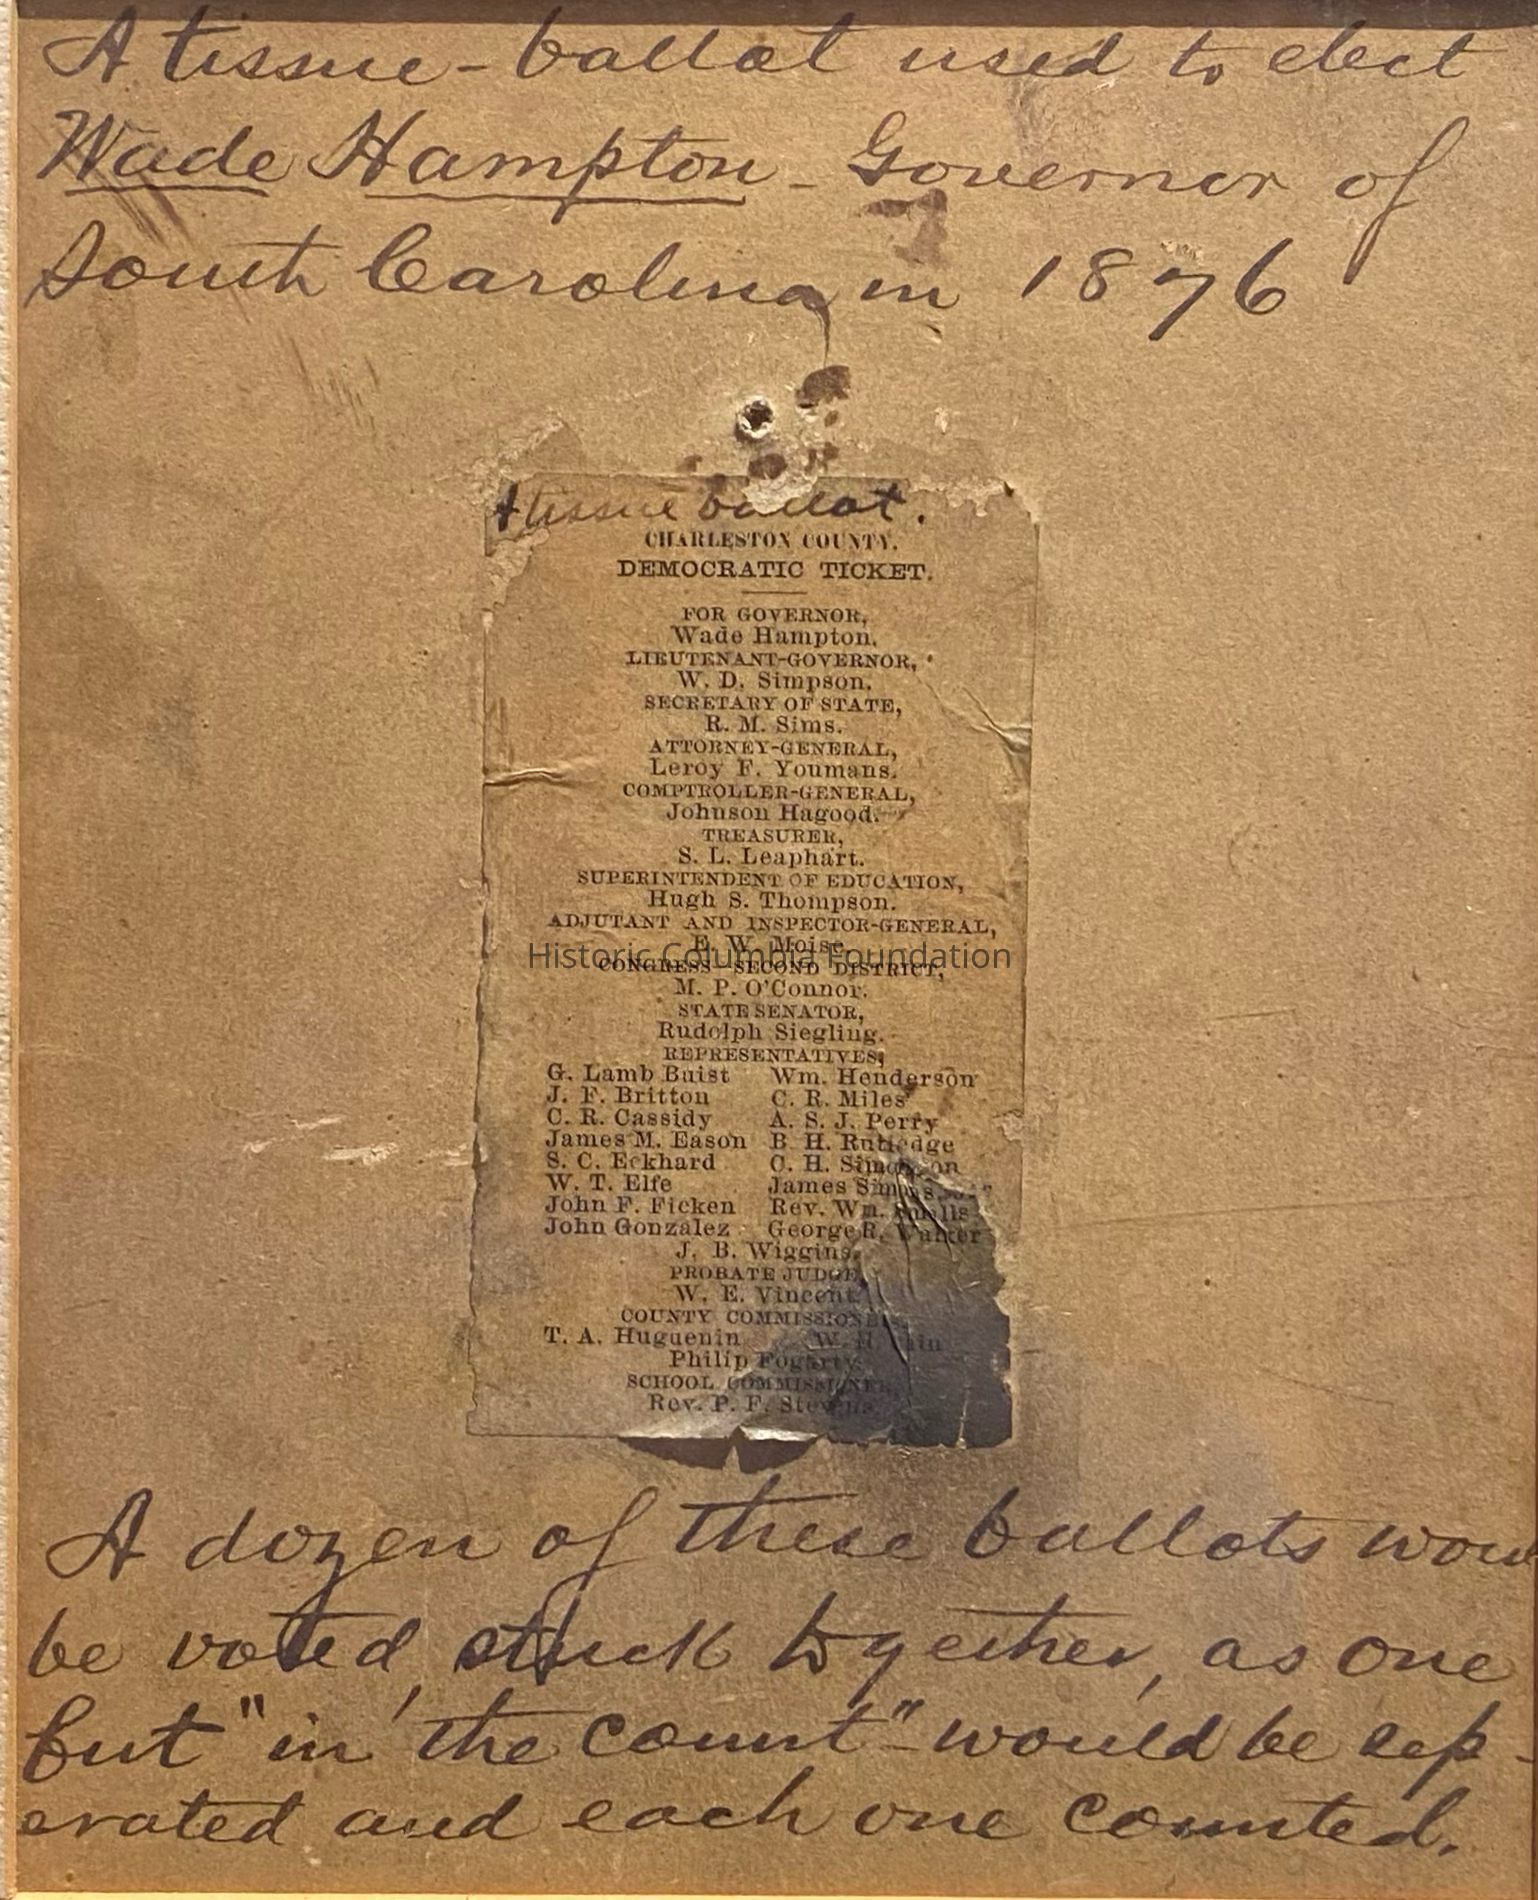 A tissue-ballot used to elect
Wade Hampton - Governor of
South Carolina in 1876
A tissue ballot.
CHARLESTON COUNTY.
DEMOCRATIC TICKET.
FOR GOVERNOR,
Wade Hampton.
LIEUTENANT-GOVERNOR,
W. D. Simpson.
SECRETARY OF STATE,
R. M. Sims.
ATTORNEY-GENERAL,
Leroy F. Youmans.
COMPTROLLER-GENERAL,
Johnson Hagood.
TREASURER,
S. L. Leaphart.
SUPERINTENDENT OF EDUCATION,
Hugh S. Thompson.
ADJUTANT AND INSPECTOR-GENERAL,
E. W. Moise.
Historic Columbia Foundation
CONGRESS—SECOND DISTRICT,
M. P. O'Connor.
STATE SENATOR,
Rudolph Siegling.
REPRESENTATIVES,
G. Lamb Buist Wm. Henderson
J. F. Britton C. R. Miles
C. R. Cassidy A. S. J. Perry
James M. Eason B H. Rutledge
S. C. Eckhard C. H. Simonton
W. T. Elfe James Simons
John F. Ficken Rev. Wm.
John Gonzalez George R. Walker
J. B. Wiggins.
PROBATE JUDGE,
W. E. Vincent.
COUNTY COMMISSIONERS,
T. A. Huguenin W. H
Philip Fogarty.
SCHOOL COMMISSIONER,
Rev. P. F. Stevens.
A dozen of these ballots wou
be voted, stuck together, as one
but "in the count" - would be sep-
erated and each one counted.